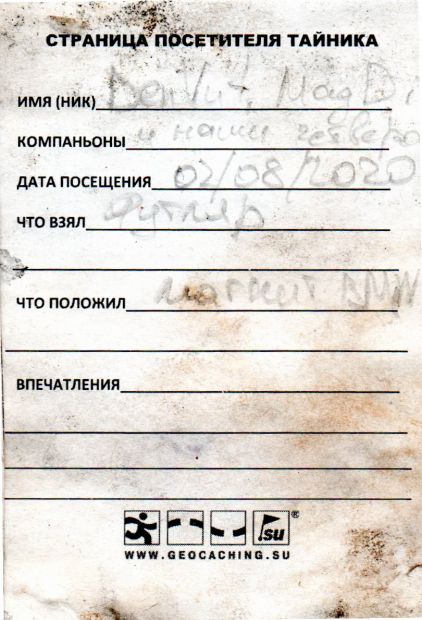 СТРАНИЦА ПОСЕТИТЕЛЯ ТАЙНИКА
ИМЯ (НИК) DenVit, MagDi
и наши
КОМПАНЬОНЫ
ДАТА ПОСЕЩЕНИЯ 02/08/2020
ЧТО ВЗЯЛ футляр
ЧТО ПОЛОЖИЛ магнит BMW
ВПЕЧАТЛЕНИЯ
.su ®
WWW.GEOCACHING.SU